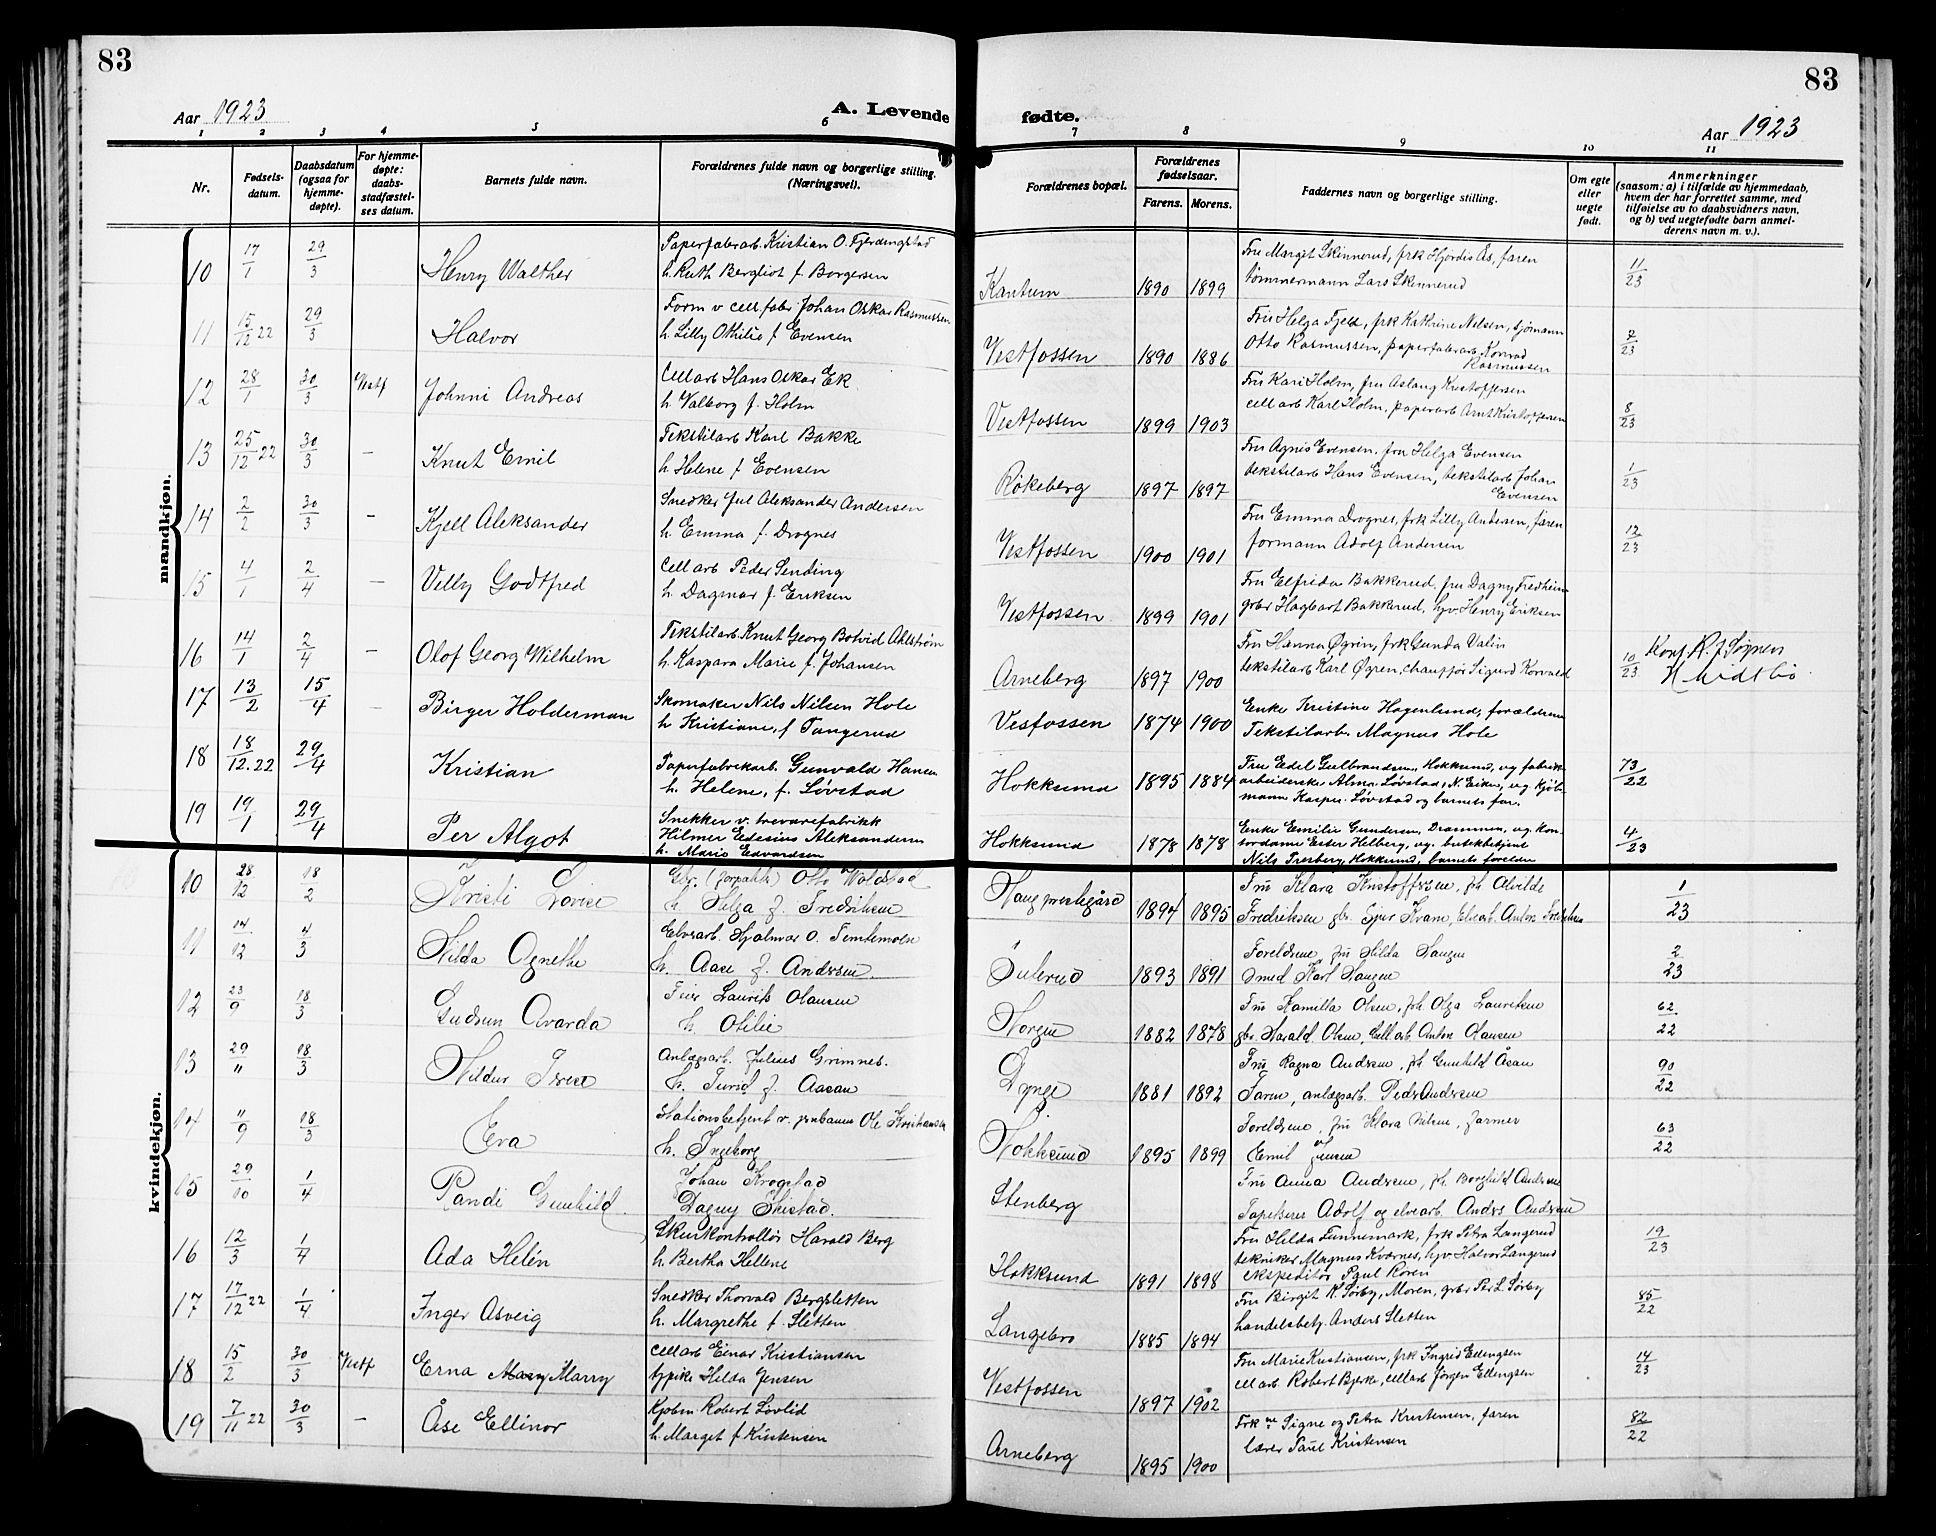 83
83
Aar 1923
A. Levende fødte.
Aar 1923
1 2 3 4 5 6 7 8 9 10 11
Nr.
Fødsels-
datum.
Daabsdatum
(ogsaa for
hjemme-
døpte).
For hjemme-
døpte:
daabs-
stadfæstel-
ses datum.
Barnets fulde navn.
Forældrenes fulde navn og borgerlige stilling.
(Næringsvei).
Forældrenes bopæl.
Forældrenes
fødselsaar.
Farens. Morens.
Faddernes navn og borgerlige stilling.
Om egte
eller
uegte
født.
Anmerkninger
(saasom: a) i tilfælde av hjemmedaab,
hvem der har forrettet samme, med
tilføielse av to daabsvidners navn,
og b) ved uegtefødte barn anmel-
derens navn m. v.).
mandkjøn.
10 17/1 29/3 Henry Walther Paperfabarb Kristian O. Fjerdingstad Kantum 1890 1899 Fru Margit Skinnerud, frk Hjördis As, faren 11/23
h. Ruth Bergliot f. Borgersen tømmermann Lars Skinnerud
11 15/12 22 29/3 Halvor Form v cell.fabr Johan Oskar Rasmussen Vestfossen 1890 1886 Fru Helga Fjeld, frk Kathrine Nilsen, sjømann 7/23
h. Lilly Othilie f Evensen Otto Rasmussen, paperfabarb Konrad
Rasmussen
12 28/1 30/3 Vestf Johnni Andreas Cellarb Hans Oskar Ek Vestfossen 1899 1903 Fru Kari Holm, fru Aslaug Kristoffersen 8/23
h Valborg f. Holm cellarb Karl Holm, paperarb Arnt Kristoffersen
13 25/12 22 30/3 — Knut Emil Tekstilarb Karl Bakke Rökeberg 1897 1897 Fru Agnes Evensen, fru Helga Evensen 1/23
h Helene f Evensen tekstilarb Hans Evensen, tekstilarb Johan
Evensen
14 2/2 30/3 — Kjell Aleksander Snedker Jul Aleksander Andersen Vestfossen 1900 1901 Fru Emma Drognes, frk Lilly Andersen, faren 12/23
h. Emma f. Drognes formann Adolf Andersen
15 4/1 2/4 — Villy Godtfred Cellarb Peder Sending Vestfossen 1899 1901 Fru Elfrida Bakkerud, fru Dagny Fredheim
h. Dagmar f. Eriksen grbr Hagbart Bakkerud, hjv Henry Eriksen
16 14/1 2/4 — Olof Georg Wilhelm Tekstilarb Knut Georg Botvid Ahlström Arneberg 1897 1900 Fru Hanna Øgrin, frk Gunda Valin 10/23
h. Kaspara Marie f. Johansen tekstilarb Karl Øgren, chauffør Sigurd Korvald
17 13/2 15/4 — Birger Holderman Skomaker Nils Nilsen Hole Vesfossen 1874 1900 Enke Kristine Hagenlund, forældrene
h Kristiane, f Tangerud Tekstilarb. Magnus Hole
18 18/12.22 29/4 Kristian Paperfabrikarb. Gunvald Hansen Hokksund 1895 1884 Fru Edel Gulbrandsen, Hokksund, ug fabrik- 73/22
h. Helene, f. Lövstad arbeiderske Alma Lövstad, N. Eiker, ug. kjöb-
mann Kasper Lövstad og barnets far.
19 19/1 29/4 Per Algot Snekker v. trevarefabrikk Hokksund 1878 1878 Enke Emilie Gundersen, Drammen, ug. kon- 4/23
Hilmer Edesius Aleksandersen tordame Ester Helberg, ug. butikkbetjent
h. Marie Edvardsen Nils Tresberg, Hokksund, barnets forelder
kvindekjøn.
10 28/12 18/2 Kristi Lovise Gbr. (forpakter) Otto Woldstad Haug prestegård 1894 1895 Fru Klara Kristoffersen, frk Alvilde 1/23
h. Helga f. Fredriksen Fredriksen gbr. Sjur Kvam, elvearb. Anton Fredriksen
11 14/12 4/3 Hilda Agnethe Elvearb. Hjalmar O. Temtemoen Sulerud 1893 1891 Foreldrene, fru Hilda Haugen 2/23
h. Aase f. Andersen. smed Karl Haugen
12 23/9 18/3 Gudrun Avarda Laurits Olausen Horgen 1882 1878 Fru Kamilla Olsen, frk Olga Lauritsen 62/22
h. Otilie gbr. Harald Olsen, Cell.arb. Anton Olausen
13 29/11 18/3 Hildur Anlægsarb. Julius Grimnes. Dynge 1881 1892 Fru Ragna Andersen, frk Gunhild Åsan 90/22
h. f. Aasan Faren, anlægsarb. Peder Andersen
14 11/9 18/3 Eva Stationsbetjent v. jernbanen Ole Kristiansen Hokksund 1895 1899 Foreldrene, fru Klara Nilsen, farmer 63/22
h. Ingeborg Emil Jensen
15 29/10 1/4 Randi Gunhild. Johan Krogstad Stenberg Fru Anna Andersen, frk Borghild Andersen
Dagny Tapetserer Adolf og elvearb. Anders Andersen
16 12/3 1/4 Ada Helén Skurkontrollör Harald Berg Hokksund 1891 1898 Fru Hilda Funnemark, frk Petra Langerud 19/23
h. Bertha Hellene tekniker Magnus Kværnes, hjv Halvor Langerud
ekspeditör Paul Roren
17 17/12 22 1/4 Inger Asveig Snedker Thorvald Bergsletten Langebro 1885 1894 Fru Birgit K. Sörby, Moren, grbr Per L. Sörby 85/22
h. Margrethe f. Sletten handelsbetj. Anders Sletten
18 15/2 30/3 Vestf Erna Mary Marry Cellarb Einar Kristiansen Vestfossen 1897 1902 Fru Marie Kristiansen, frk Ingrid Ellingsen 14/23
typike Hilda Jensen cellarb. Robert Bjerke, cellarb Jörgen Ellingsen
19 7/11 22 30/3 — Åse Ellinor Kjöbm. Robert Lovlid Arneberg 1895 1900 Frkne Signe og Petra Kristensen, faren 82/22
h. Marget f Kristensen lærer Paul Kristensen